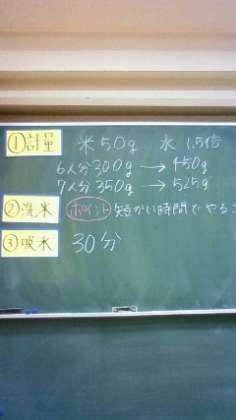 ①計量 米50g 水1.5倍
6人分300g→450g
7人分350g→525g
②洗米 ポイント 短かい時間でやる
③吸水 30分